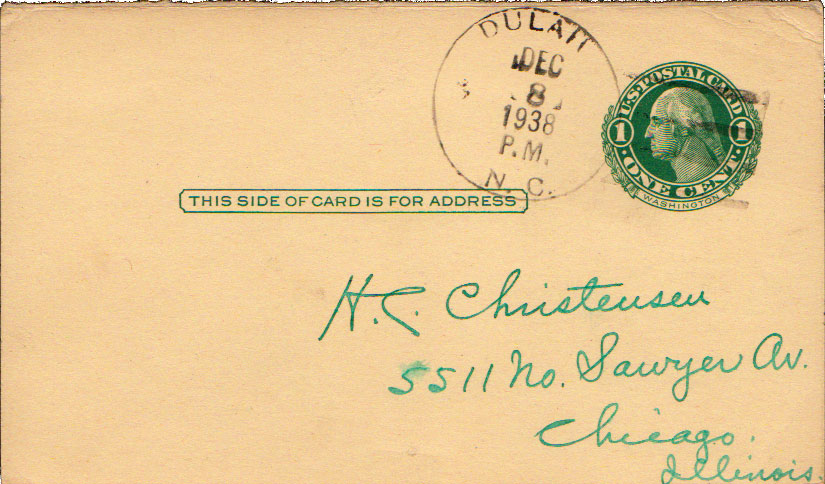 DULAH
DEC
8
1938
P.M.
N. C.
U.S. POSTAL CARD
1 1
ONE CENT
WASHINGTON
THIS SIDE OF CARD IS FOR ADDRESS
H. C. Christensen
5511 No. Sawyer Av.
Chicago.
Illinois.